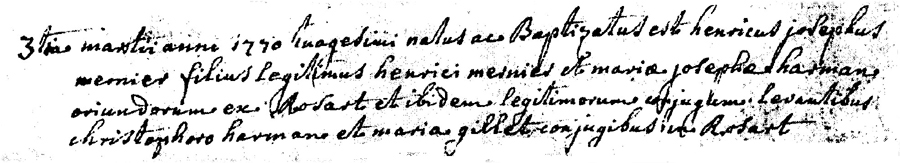 3tia martii anni 1770 tuagesimi natus ac Baptizatus est henricus josephus
mernier filius legitimus henrici mernier et mariæ josephæ harman
oriundorum ex Rosart et ibidem legitimorum conjugum. Levantibus
christophoro harman et maria gillet conjugibus in Rosart